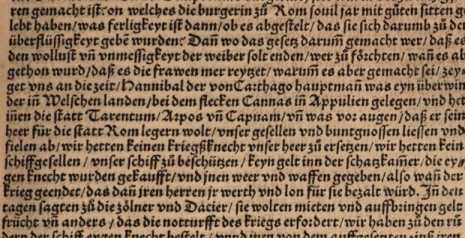 ren gemacht ist: on welches die burgerin zů Rom souil jar mit gůten sitten ge
lebt haben/was ferligkeyt ist dann/ob es abgestelt/das sie sich darumb zů de
überflüssigkeyt gebē wurden: Dañ wo das gesetz darum̃ gemacht wer/daß es
den wollust vñ vnmessigkeyt der weiber solt enden/wer zů förchten/wañ es ab
gethon wurd/daß es die frawen mer reytzet/warum̃ es aber gemacht sei/zey
get vns an die zeit/Hannibal der von Carthago hauptmañ was eyn überwin
der iñ Welschen landen/bei dem flecken Cannas iñ Appulien gelegen/vnd het
iñen die statt Tarentum/Arpos vñ Capuam/vñ was vor augen/daß er sein
heer für die statt Rom legern wolt/vnser gesellen vnd buntgnossen liessen vnd
fielen ab/wir hetten keinen kriegßknecht vnser heer zů ersetzen/wir hetten kein
schiffgesellen/vnser schiff zů beschützen/keyn gelt inn der schatzkamer/die ey
gen knecht wurden gekaufft/vnd jnen weer vnd waffen gegeben/also wañ der
krieg geendet/das dañ jren herren jr werth vnd lon für sie bezalt würd. In den
tagen sagten zů die zölner vnd Dacier/sie wolten mieten vnd auffbringen gelt
frücht vñ anders/das die notturfft des kriegs erfordert/wir haben zů den rů
dern der schiff eygen knecht bestelt/vnd jnen von dem